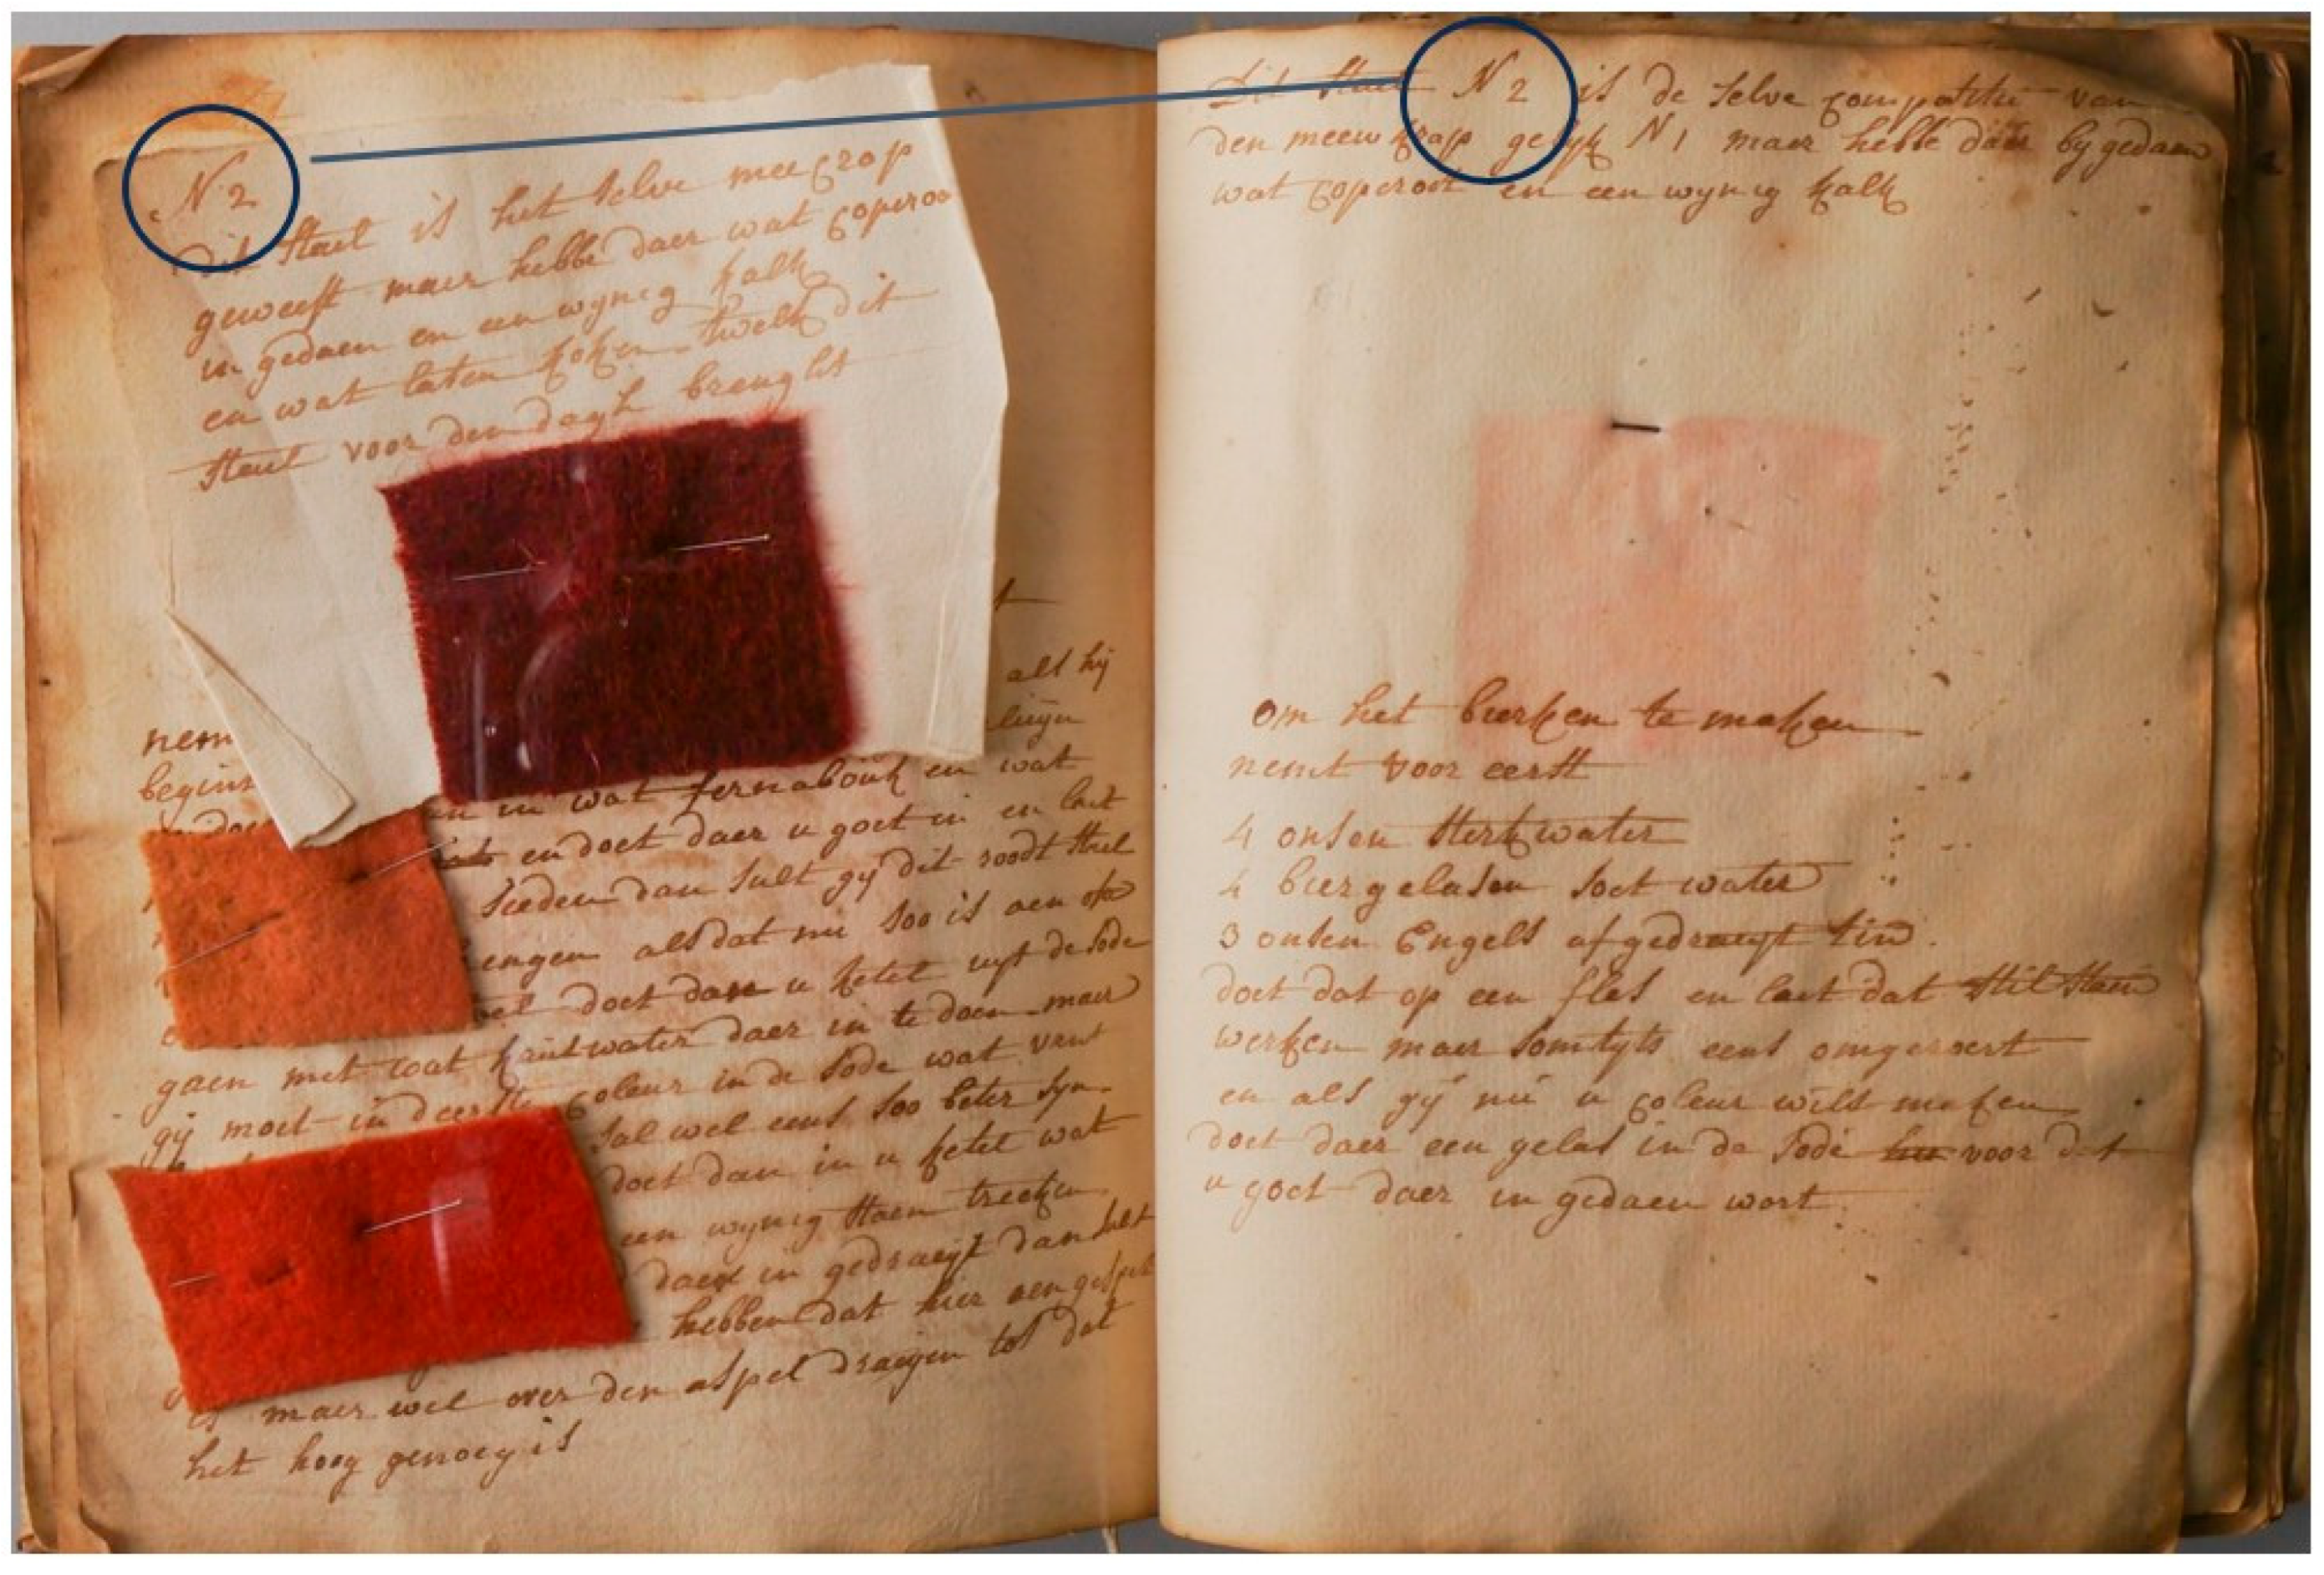 N 2
Dit stael is het selve mee crap
geweest maer hebbe daer wat coperoo
in gedaen en een wynig kalk
en wat laten koken twelk dit
stael voor den dagh brenght
alt hij
nem
begint
in wat fernabouk en wat
en doet daer u goet in en laet
sieden dan sult gij dit roodt stael
engen als dat nu soo is aen
doet dan u ketel uyt de sode
gaen met wat water daer in te doen maer
gij moet in deerste coleur in de sode wat
sal wel eens soo beter syn
doet dan in u ketel wat
een wynig staen trecken
daer in gedraeijt dan sult
hebben dat hier aen
is maer wel over den aspel draeijen tot dat
het hoog genoeg is
Dit stael N 2 is de selve van
den meew krap gelyk N 1 maer hebbe daer by gedaen
wat coperoot en een wynig kalk
om het bierken te maken
nemt voor eerst
4 onsen sterk water
4 biergelasen soet water
3 onsen Engels afgedraeyt tin
doet dat op een fles en laet dat stil staen
werken maer somtyts eens omgeroert
en als gij nu u coleur wilt maken
doet daer een gelas in de sode voor dat
u goet daer in gedaen wort